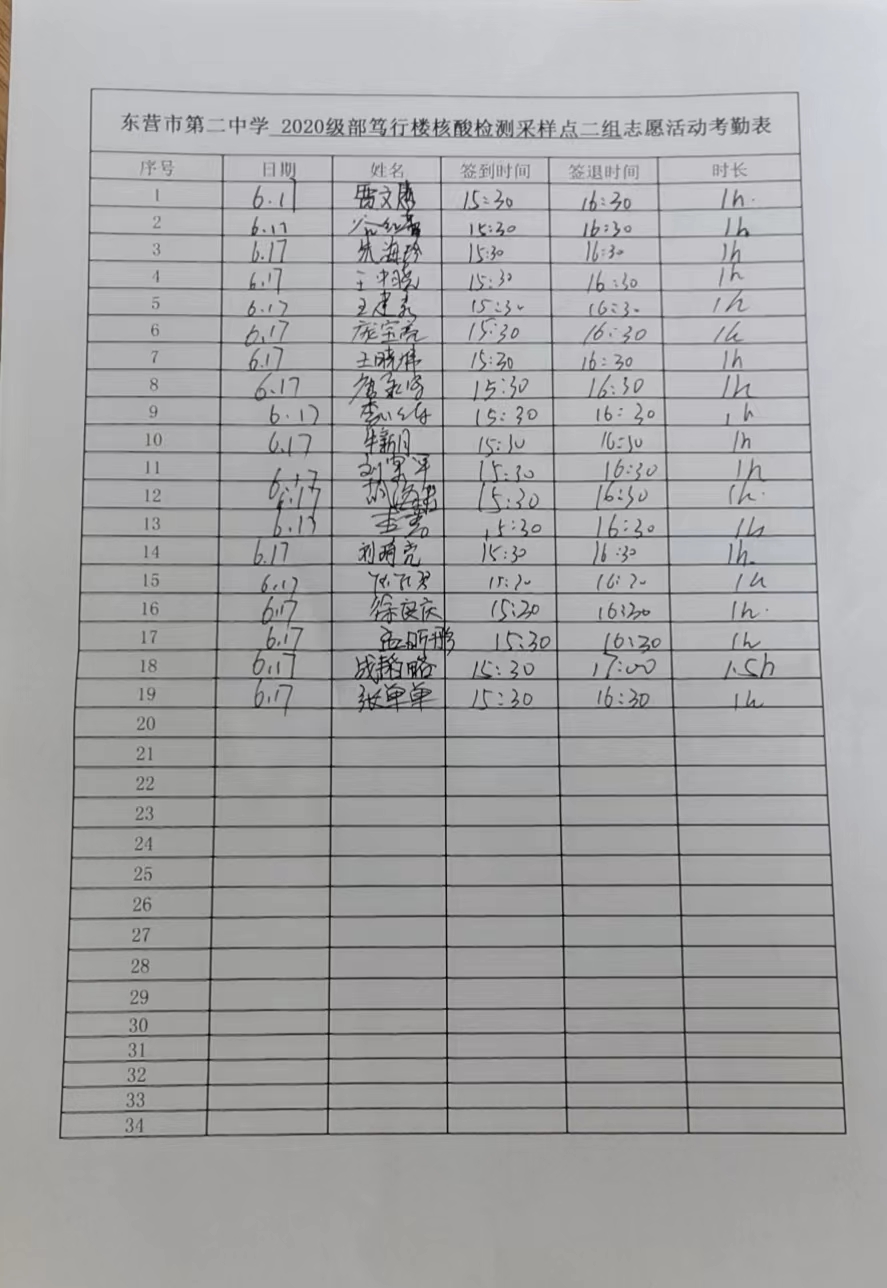 东营市第二中学 2020级部笃行楼核酸检测采样点二组志愿活动考勤表
序号 日期 姓名 签到时间 签退时间 时长
1 6.17 15:30 16:30 1h.
2 6.17 15:30 16:30 1h
3 6.17 15:30 16:30 1h
4 6.17 15:30 16:30 1h
5 6.17 王建永 15:30 16:30 1h
6 6.17 庞宝亮 15:30 16:30 1h
7 6.17 王晓伟 15:30 16:30 1h
8 6.17 15:30 16:30 1h
9 6.17 15:30 16:30 1h
10 6.17 牛新月 15:30 16:30 1h
11 6.17 15:30 16:30 1h
12 6.17 15:30 16:30 1h.
13 6.17 15:30 16:30 1h
14 6.17 刘明亮 15:30 16:30 1h.
15 6.17 15:30 16:30 1h
16 6.17 徐良庆 15:30 16:30 1h.
17 6.17 15:30 16:30 1h
18 6.17 战韬略 15:30 17:00 1.5h
19 6.17 张单单 15:30 16:30 1h
20
21
22
23
24
25
26
27
28
29
30
31
32
33
34